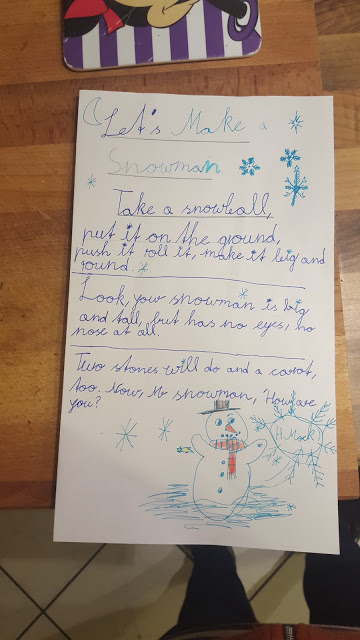 Let's Make a
Snowman
Take a snowball,
put it on the ground,
push it roll it, make it big and
round.
Look, your snowman is big
and tall, but has no eyes, no
nose at all.
Two stones will do and a carrot,
too. Now, Mr snowman, 'How are
you?